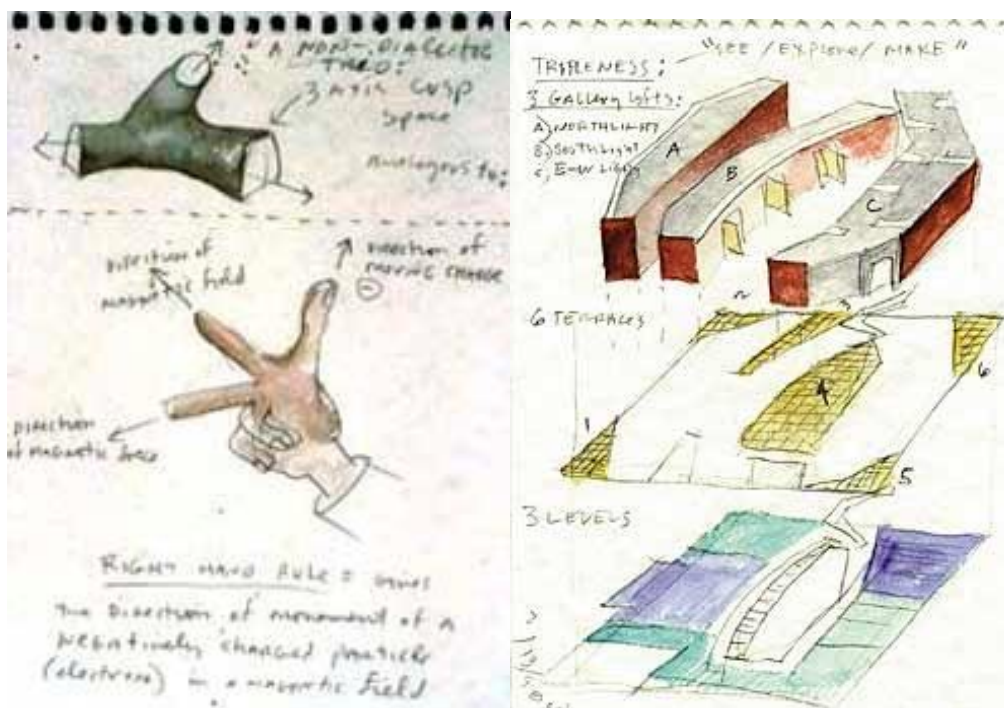 "A NON-DIALECTIC
THIRD:
3 AXIS CUSP
Space
Analogous to:
Direction of
magnetic field
Direction of
moving charge
Direction
of magnetic force
RIGHT HAND RULE = gives
the Direction of movement of a
negatively charged particle
(electron) in a magnetic field
"SEE / EXPLORE / MAKE"
TRIPLENESS:
3 GALLERY Lofts:
A) NORTH LIGHT
B) South Light
C) E-W Light
A
B
C
6 TERRACES
1
2
3
4
5
6
3 LEVELS